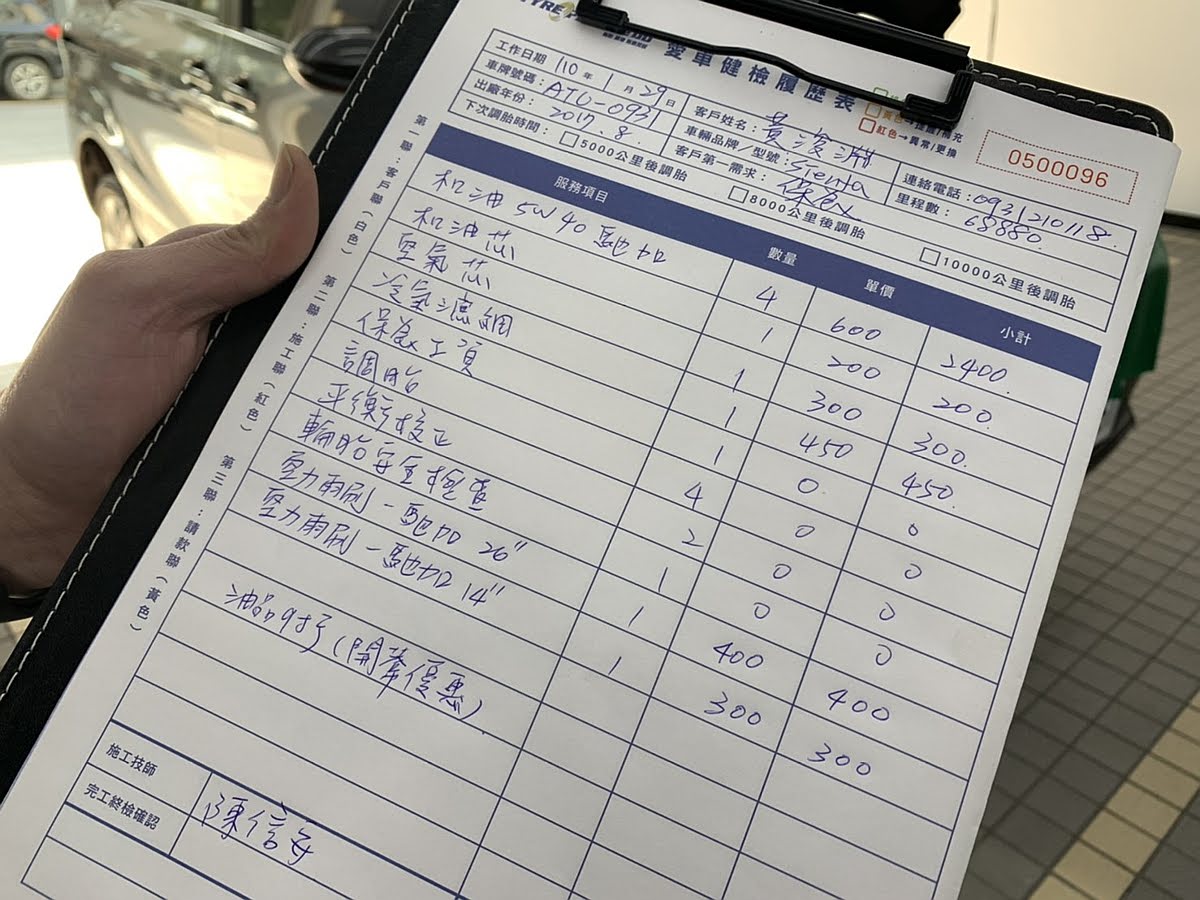 愛車健檢履歷表
紅色→異常/更換
0500096
工作日期 110 年 1 月 29 日 客戶姓名: 黃浚淵 連絡電話: 0931210118
車牌號碼: ATU-0931 車輛品牌/型號: Sienta 里程數: 68880
出廠年份: 2017.8. 客戶第一需求: 保養
下次調胎時間: □5000公里後調胎 □8000公里後調胎 □10000公里後調胎
服務項目 數量 單價 小計
机油 5W40 馳加 4 600 2400
机油芯 1 200 200
空氣芯 1 300 300
冷氣濾網 1 450 450
保養工資 1 0 0
調胎 4 0 0
平衡校正 2 0 0
輪胎安全檢查 1 0 0
亞力雨刷-馳加 26" 1 400 400
亞力雨刷-馳加 14" 1 300 300
油品9折 (開幕優惠)
施工技師
完工終檢確認
陳信每
第一聯:客戶聯(白色) 第二聯:施工聯(紅色) 第三聯:請款聯(黃色)